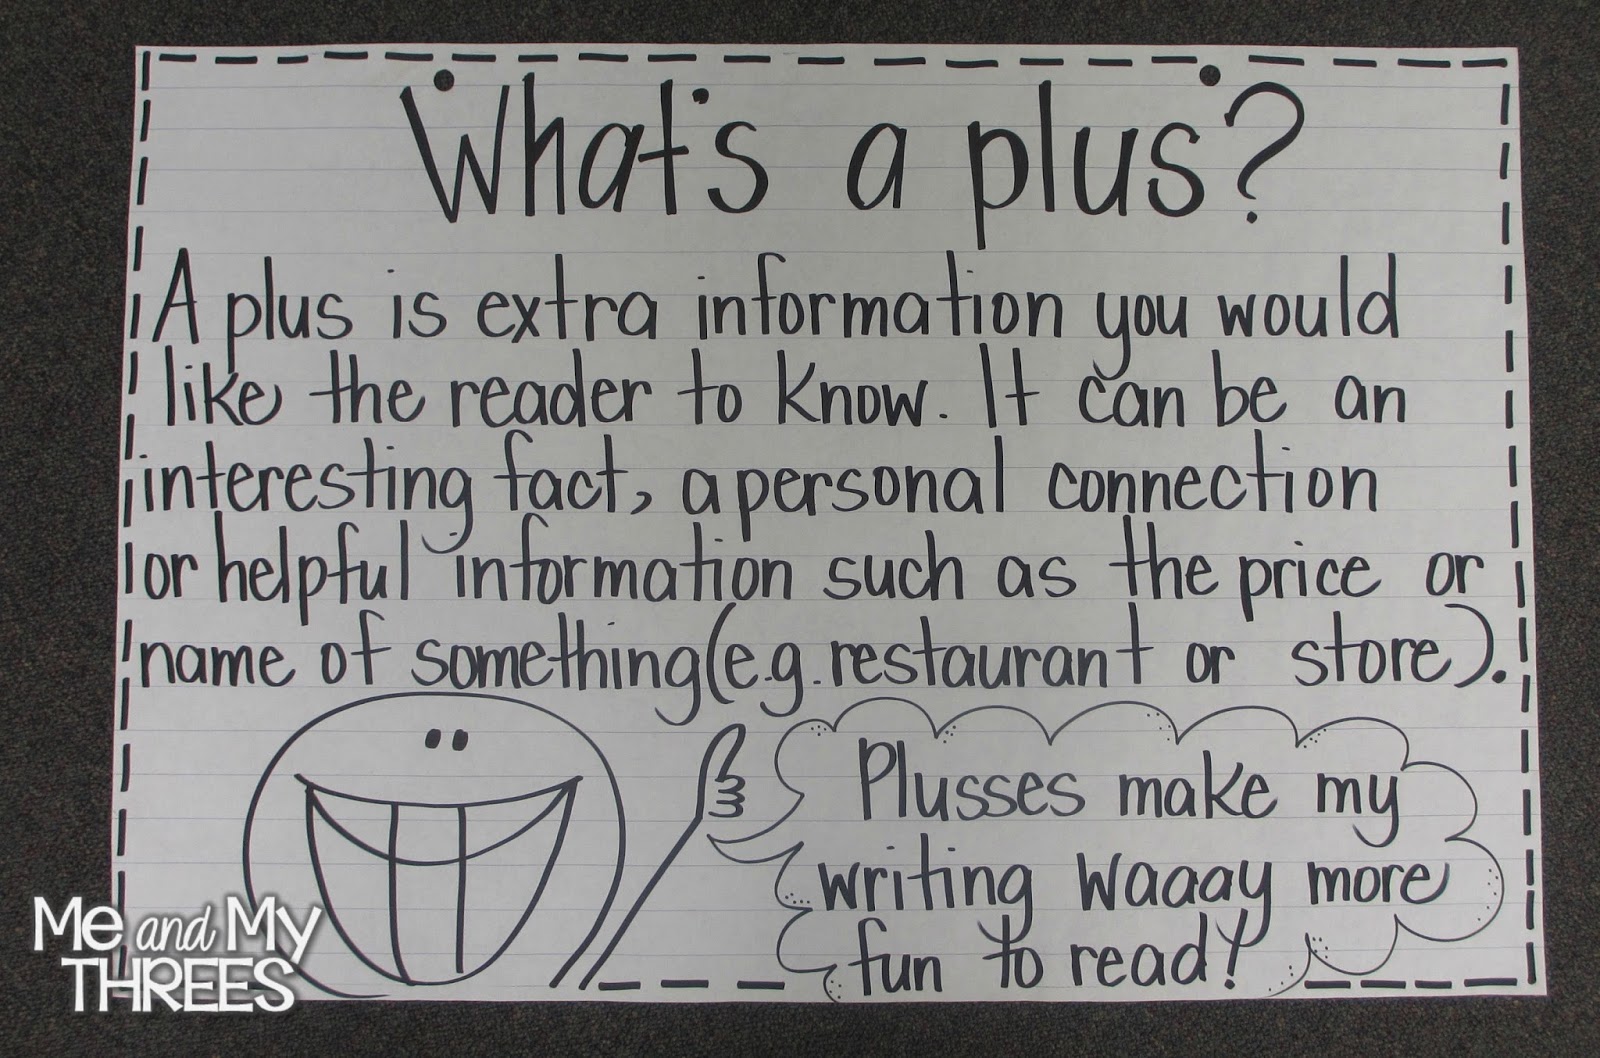 What's a plus?
A plus is extra information you would
like the reader to know. It can be an
interesting fact, a personal connection
or helpful information such as the price or
name of something (e.g. restaurant or store).
Plusses make my
writing waaay more
fun to read!
Me and My
THREES